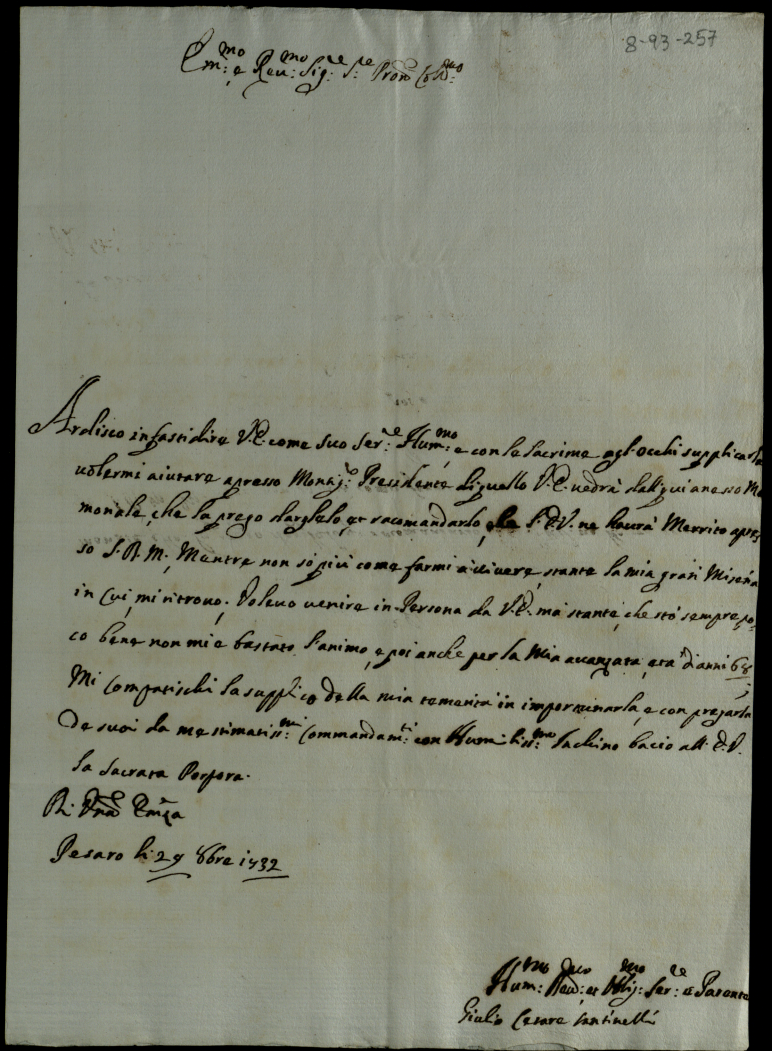 8-93-257
Em:mo e Reu:mo Sig:re S:re Pron Col:mo
Ardisco infastidire V.E. come suo Ser:re Hum:mo e con le lacrime agl'occhi supplicarla
uolermi aiutare apresso Monsig:re Presidente di quello V.E. uedrà dal qui anesso Me
moriale, che la prego darglielo, et racomandarlo, che l'E.V. ne haurà Merrito apres
so S.R.M., Mentre non sò più come farmi à uiuere stante la mia gran Miseria
in cui mi ritrouo; Voleuo uenire in Persona da V.E. mà stante, che stò sempre po
co bene non mi è bastato l'animo, e poi anche per la Mia auanzata età d'anni 68;
Mi Compatischi la supplico della mia temerità in importunarla, e con pregarla
de suoi da me stimatiss:mi Commandam:ti con Humiliss:mo Inchino bacio all'E.V.
la Sacrata Porpora.
Di Vra Emza
Pesaro li 29 8bre 1732
Hum:mo Deu:mo et Oblig:mo Ser:re e Parente
Giulio Cesare Santinelli